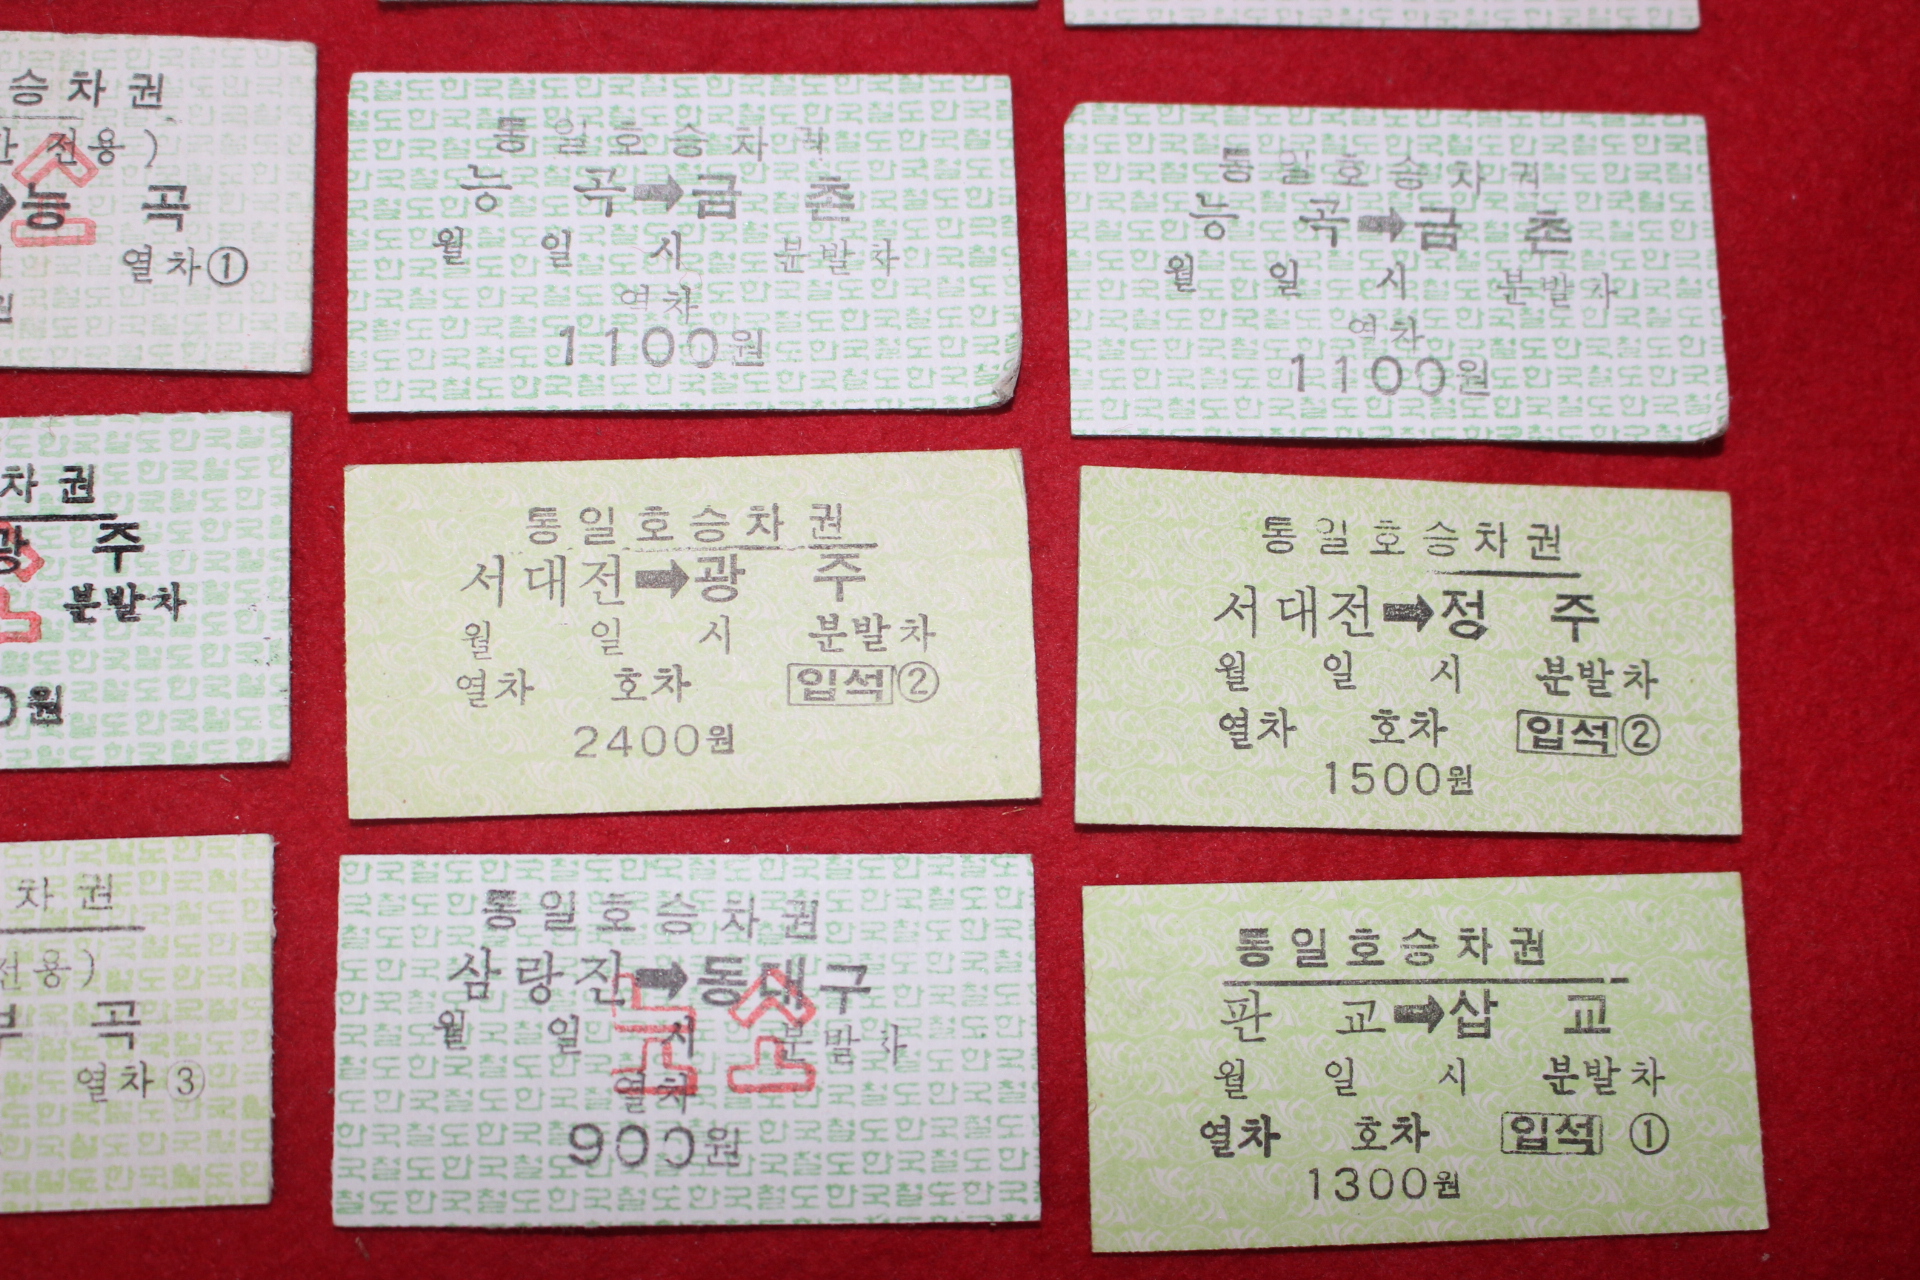 승차권
전용)
능 곡
열차①
원
통일호승차권
능 곡➡금 촌
월 일 시 분발차
열차
1100원
통일호승차권
능 곡➡금 촌
월 일 시 분발차
열차
1100원
차권
광 주
분발차
0원
통일호승차권
서대전➡광 주
월 일 시 분발차
열차 호차 입석②
2400원
통일호승차권
서대전➡정 주
월 일 시 분발차
열차 호차 입석②
1500원
차권
전용)
곡
열차③
통일호승차권
삼랑진➡동대구
월 일 시 분발차
열차
900원
소
통일호승차권
판 교➡삽 교
월 일 시 분발차
열차 호차 입석 ①
1300원